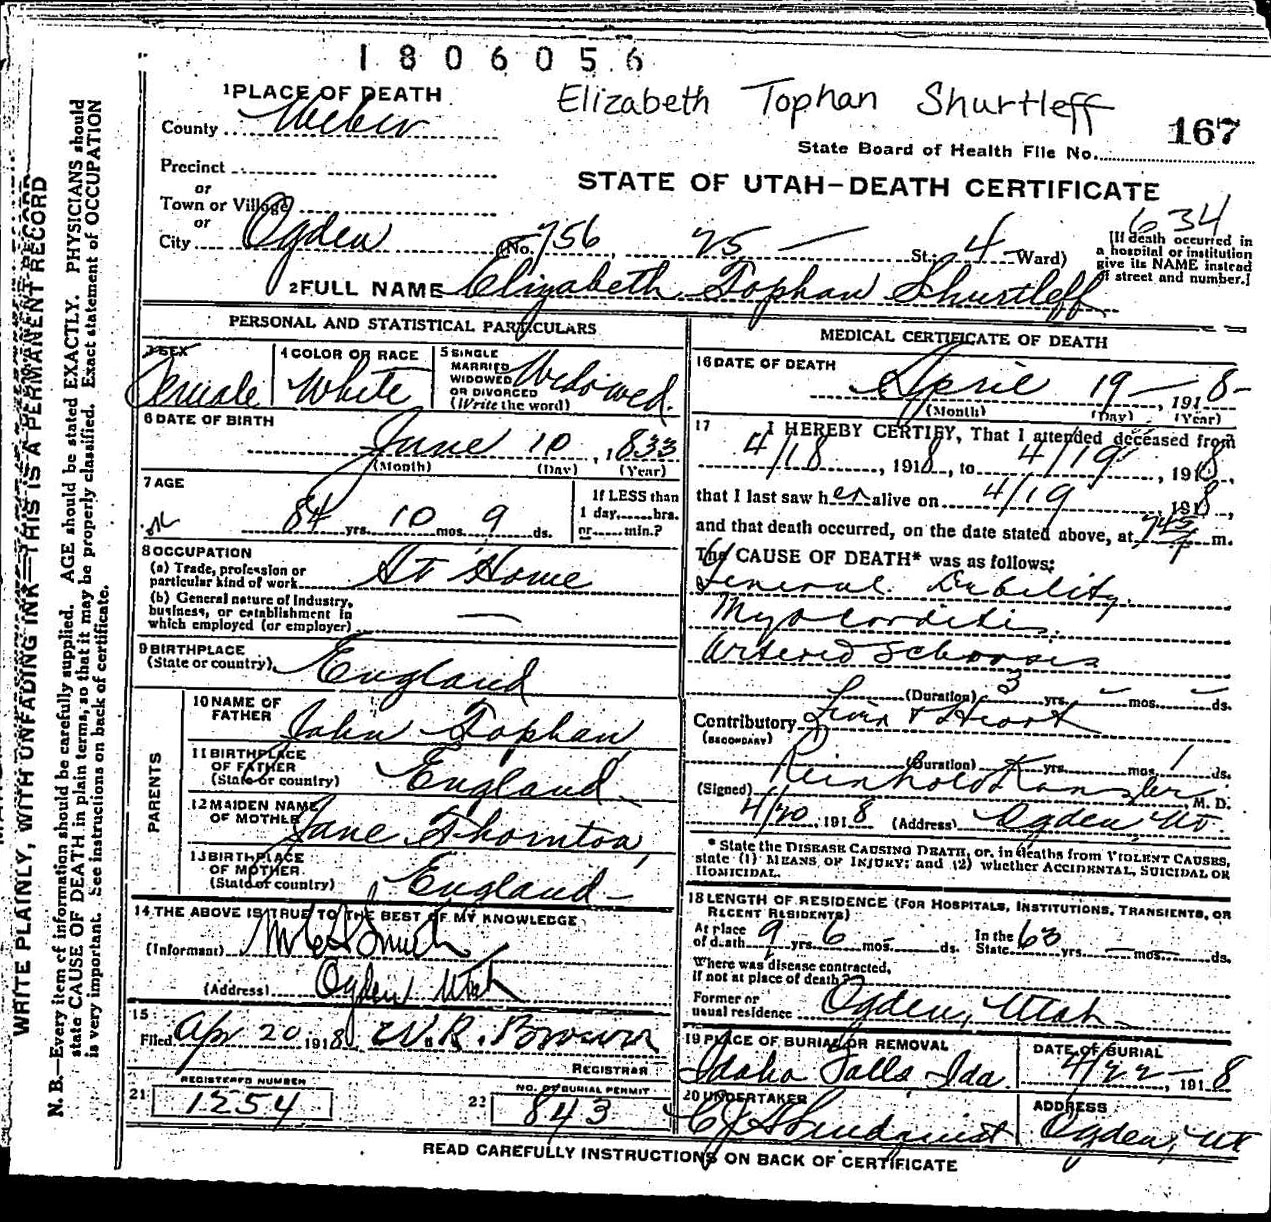 1806056
Elizabeth Tophan Shurtleff
1 PLACE OF DEATH
County Weber
167
State Board of Health File No.
Precinct
or
STATE OF UTAH-DEATH CERTIFICATE
Town or Village
or
City Ogden (No. 756 25 St.; 4 Ward)
634
[If death occurred in a hospital or institution give its NAME instead of street and number.]
2 FULL NAME Elizabeth Tophan Shurtleff
PERSONAL AND STATISTICAL PARTICULARS
3 SEX Female
4 COLOR OR RACE White
5 SINGLE MARRIED WIDOWED OR DIVORCED (Write the word) Widowed.
6 DATE OF BIRTH
June 10, 1833
(Month) (Day) (Year)
7 AGE
84 yrs. 10 mos. 9 ds.
If LESS than 1 day,......hrs. or......min.?
8 OCCUPATION
(a) Trade, profession or particular kind of work At Home
(b) General nature of industry, business, or establishment in which employed (or employer) —
9 BIRTHPLACE
(State or country) England
PARENTS
10 NAME OF FATHER John Tophan
11 BIRTHPLACE OF FATHER (State or country) England
12 MAIDEN NAME OF MOTHER Jane Thornton
13 BIRTHPLACE OF MOTHER (State or country) England
14 THE ABOVE IS TRUE TO THE BEST OF MY KNOWLEDGE
(Informant)
(Address) Ogden Utah
15
Filed Apr 20 1918 W.R. Brown
REGISTRAR
21 REGISTERED NUMBER 1254
22 NO. OF BURIAL PERMIT 843
MEDICAL CERTIFICATE OF DEATH
16 DATE OF DEATH
April 19 — , 1918-
(Month) (Day) (Year)
17 I HEREBY CERTIFY, That I attended deceased from
4/18, 1918, to 4/19, 1918,
that I last saw her alive on 4/19 1918,
and that death occurred, on the date stated above, at 745 P m.
The CAUSE OF DEATH* was as follows:
General Debility.
Myocorditis.
(Duration) 3 yrs. – mos. – ds.
Contributory
(SECONDARY)
(Duration) yrs. mos. ds.
(Signed) Reinhold Kanzler, M. D.
4/20, 1918 (Address) Ogden, Ut.
* State the DISEASE CAUSING DEATH, or, in deaths from VIOLENT CAUSES, state (1) MEANS OF INJURY; and (2) whether ACCIDENTAL, SUICIDAL OR HOMICIDAL.
18 LENGTH OF RESIDENCE (FOR HOSPITALS, INSTITUTIONS, TRANSIENTS, OR RECENT RESIDENTS)
At place of death 9 yrs. 6 mos. ds. In the State 63 yrs. – mos. ds.
Where was disease contracted, if not at place of death?
Former or usual residence Ogden, Utah
19 PLACE OF BURIAL OR REMOVAL
Idaho Falls Ida
DATE OF BURIAL
4/22, 1918
20 UNDERTAKER
ADDRESS
Ogden, Ut
READ CAREFULLY INSTRUCTIONS ON BACK OF CERTIFICATE
WRITE PLAINLY, WITH UNFADING INK—THIS IS A PERMANENT RECORD
N. B.—Every item of information should be carefully supplied. AGE should be stated EXACTLY. PHYSICIANS should
state CAUSE OF DEATH in plain terms, so that it may be properly classified. Exact statement of OCCUPATION
is very important. See instructions on back of certificate.